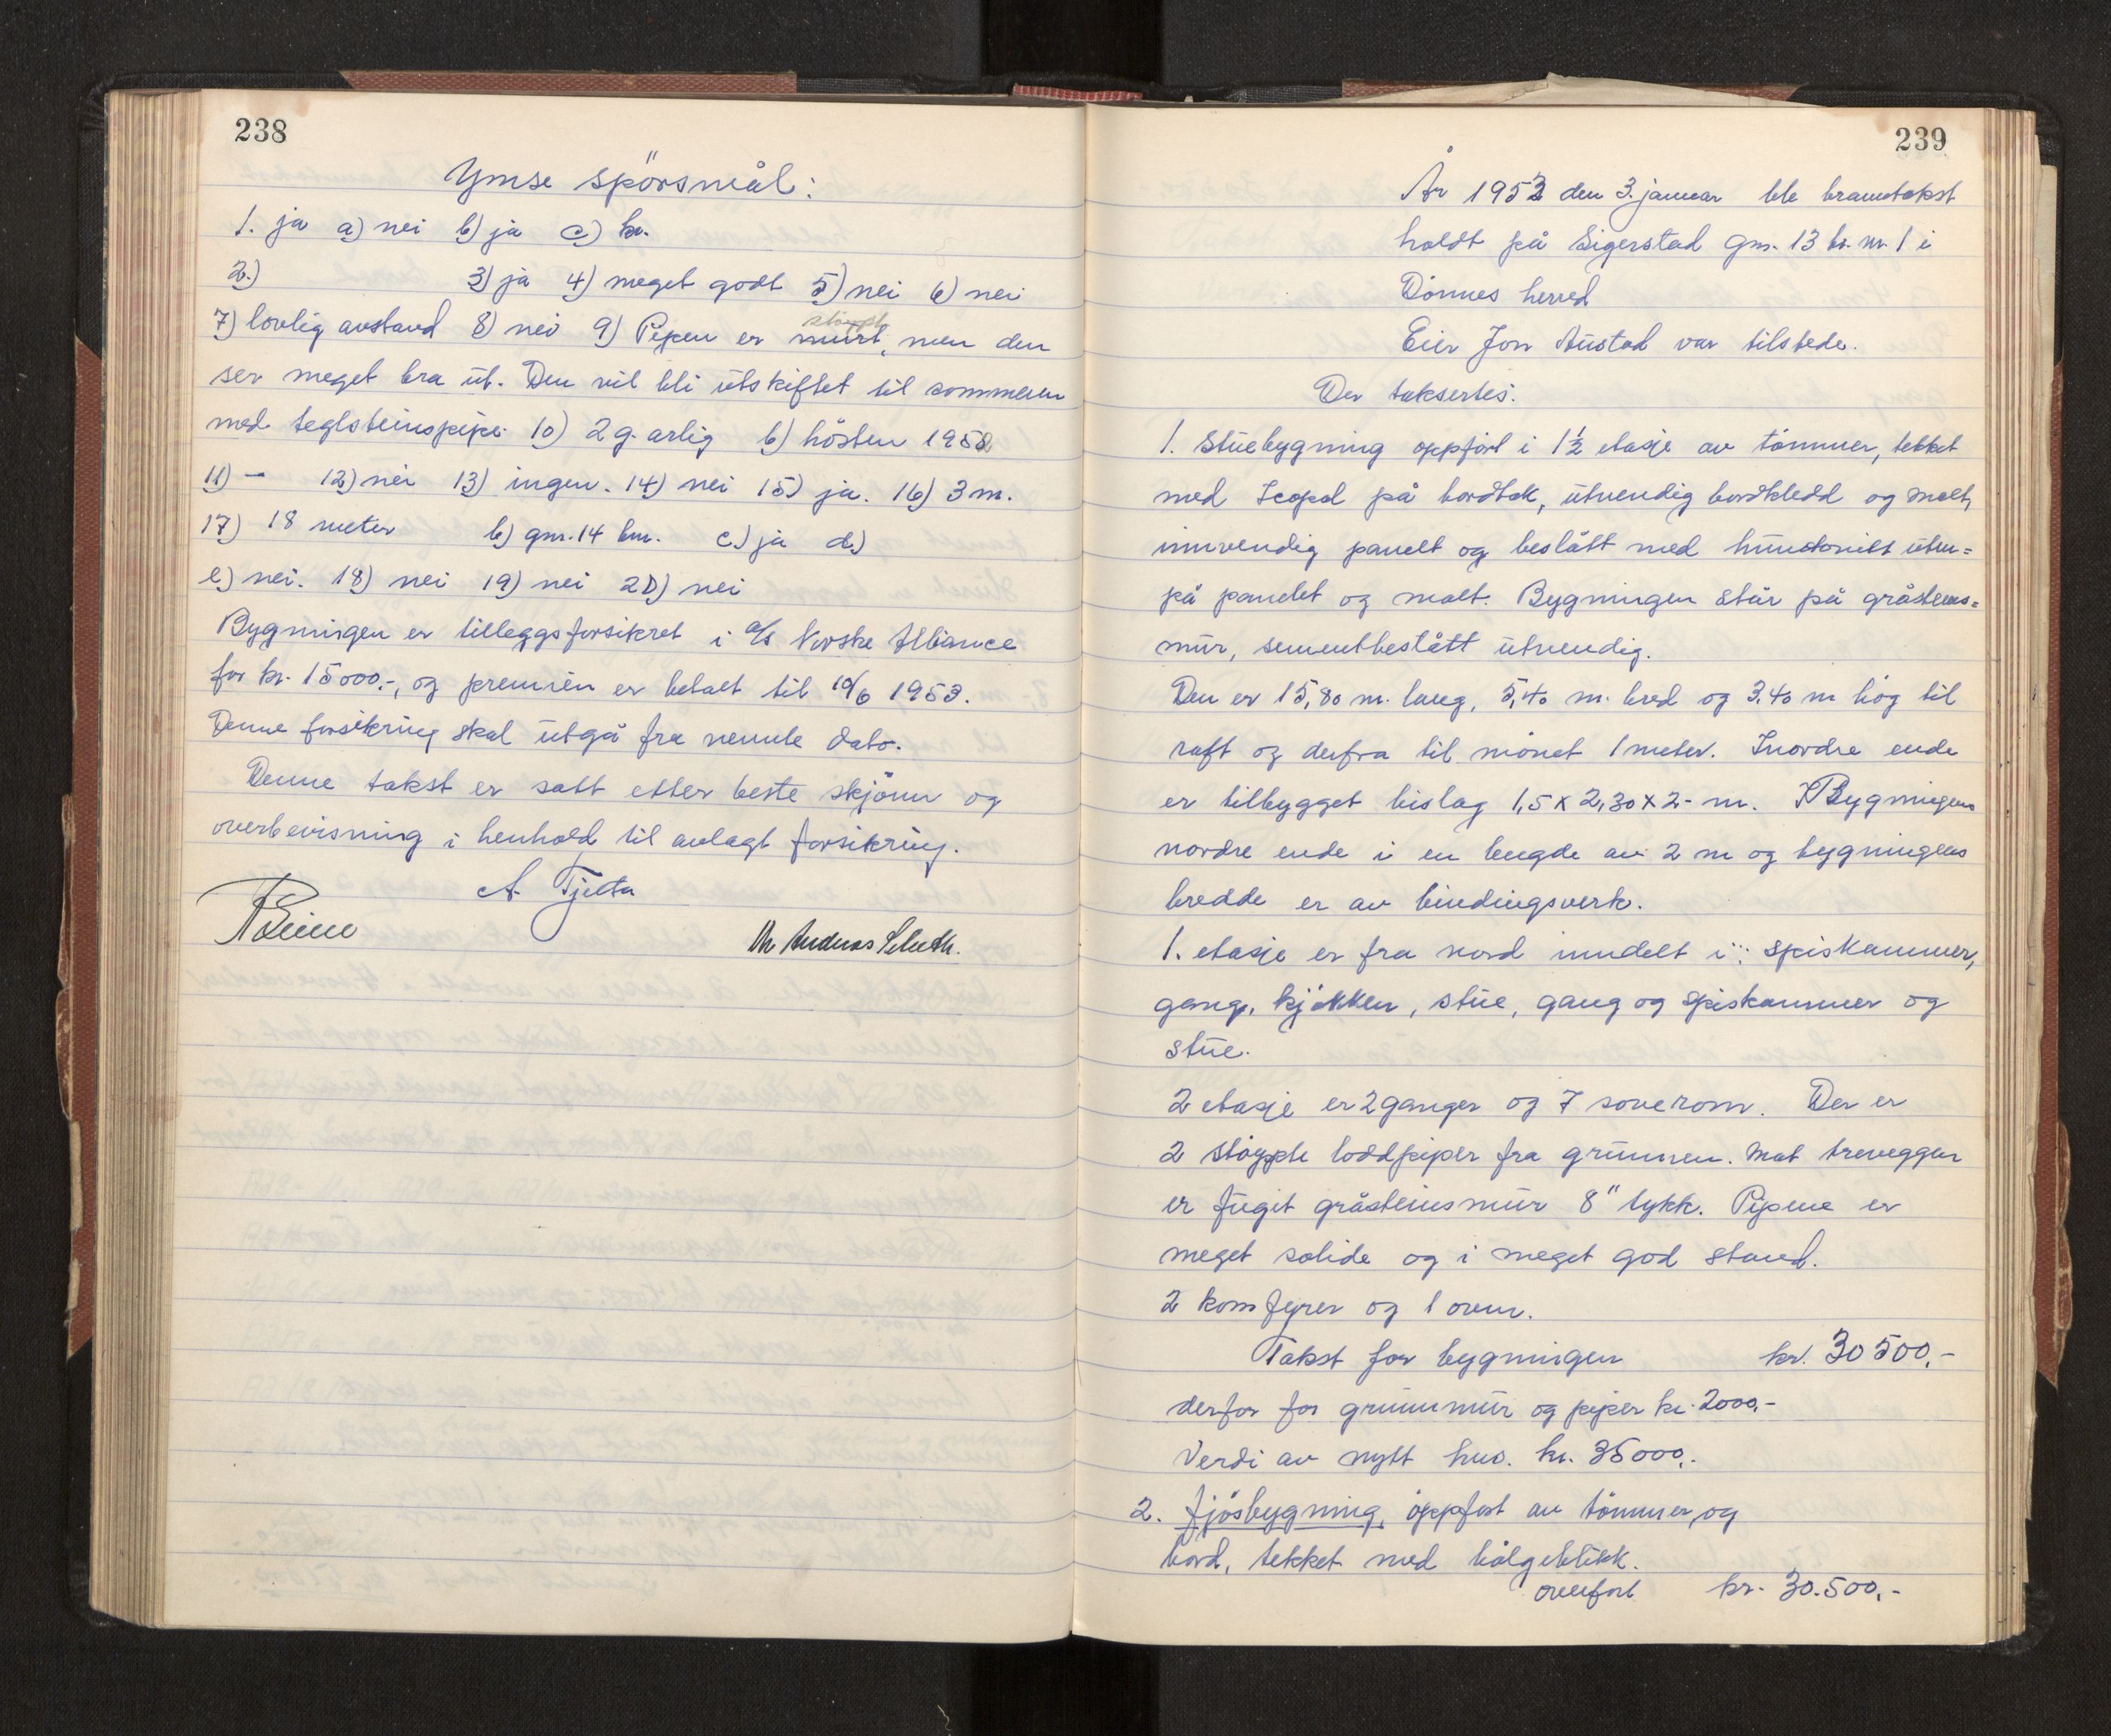 238
Ymse spörsmål:
1. ja a) nei b) ja c) kr.
2.) 3) ja 4) meget godt 5) nei 6) nei
7) lovlig avstand 8) nei 9) Pipen er murt støypt, men den
ser meget bra ut. Den vil bli utskiftet til sommeren
med teglsteinspipe. 10) 2 g. årlig b) hösten 1952
11) - 12) nei 13) ingen. 14) nei 15) ja. 16) 3 m.
17) 18 meter b) gnr. 14 bnr. c.) ja d.)
e) nei. 18) nei 19) nei 20) nei
Bygningen er tilleggsforsikret i a/s Norske Alliance
for kr. 15000.-, og premien er betalt til 10/6 1953.
Denne forsikring skal utgå fra nemnte dato.
Denne takst er satt etter beste skjönn og
overbevisning i henhold til avlagt forsikring.
A. Tjetta
239
År 1953 den 3. januar ble branntakst
holdt på Sigerstad gnr. 13 br. nr. 1 i
Dönnes herred
Eier Jon Austad var tilstede.
Der taksertes:
1. Stuebygning oppfört i 1½ etasje av tömmer, tekket
med Icopal på bordtak, utvendig bordkledd og malt,
innvendig panelt og beslått med huntonitt uten=
på panelet og malt. Bygningen står på gråsteins=
mur, sementbeslått utvendig.
Den er 15,80 m. lang, 5,40 m. bred og 3,40 m hög til
raft og derfra til mönet 1 meter. I nordre ende
er tilbygget bislag 1,5 x 2,30 x 2- m. Bygningens
nordre ende i en lengde av 2 m og bygningens
bredde er av bindingsverk.
1. etasje er fra nord inndelt i: spiskammer,
gang, kjökken, stue, gang og spiskammer og
stue.
2 etasje er 2 ganger og 7 soverom. Der er
2 stöypte loddpiper fra grunnen. Mot treveggen
er fuget gråsteinsmur 8" tykk. Pipene er
meget solide og i meget god stand.
2 komfyrer og 1 ovn.
Takst for bygningen kr. 30500,-
derfor for grunnmur og piper kr. 2000,-
Verdi av nytt hus. kr. 35000,-
2. Fjösbygning, oppfört av tömmer og
bord, tekket med bölgeblikk.
overfört kr. 30.500,-